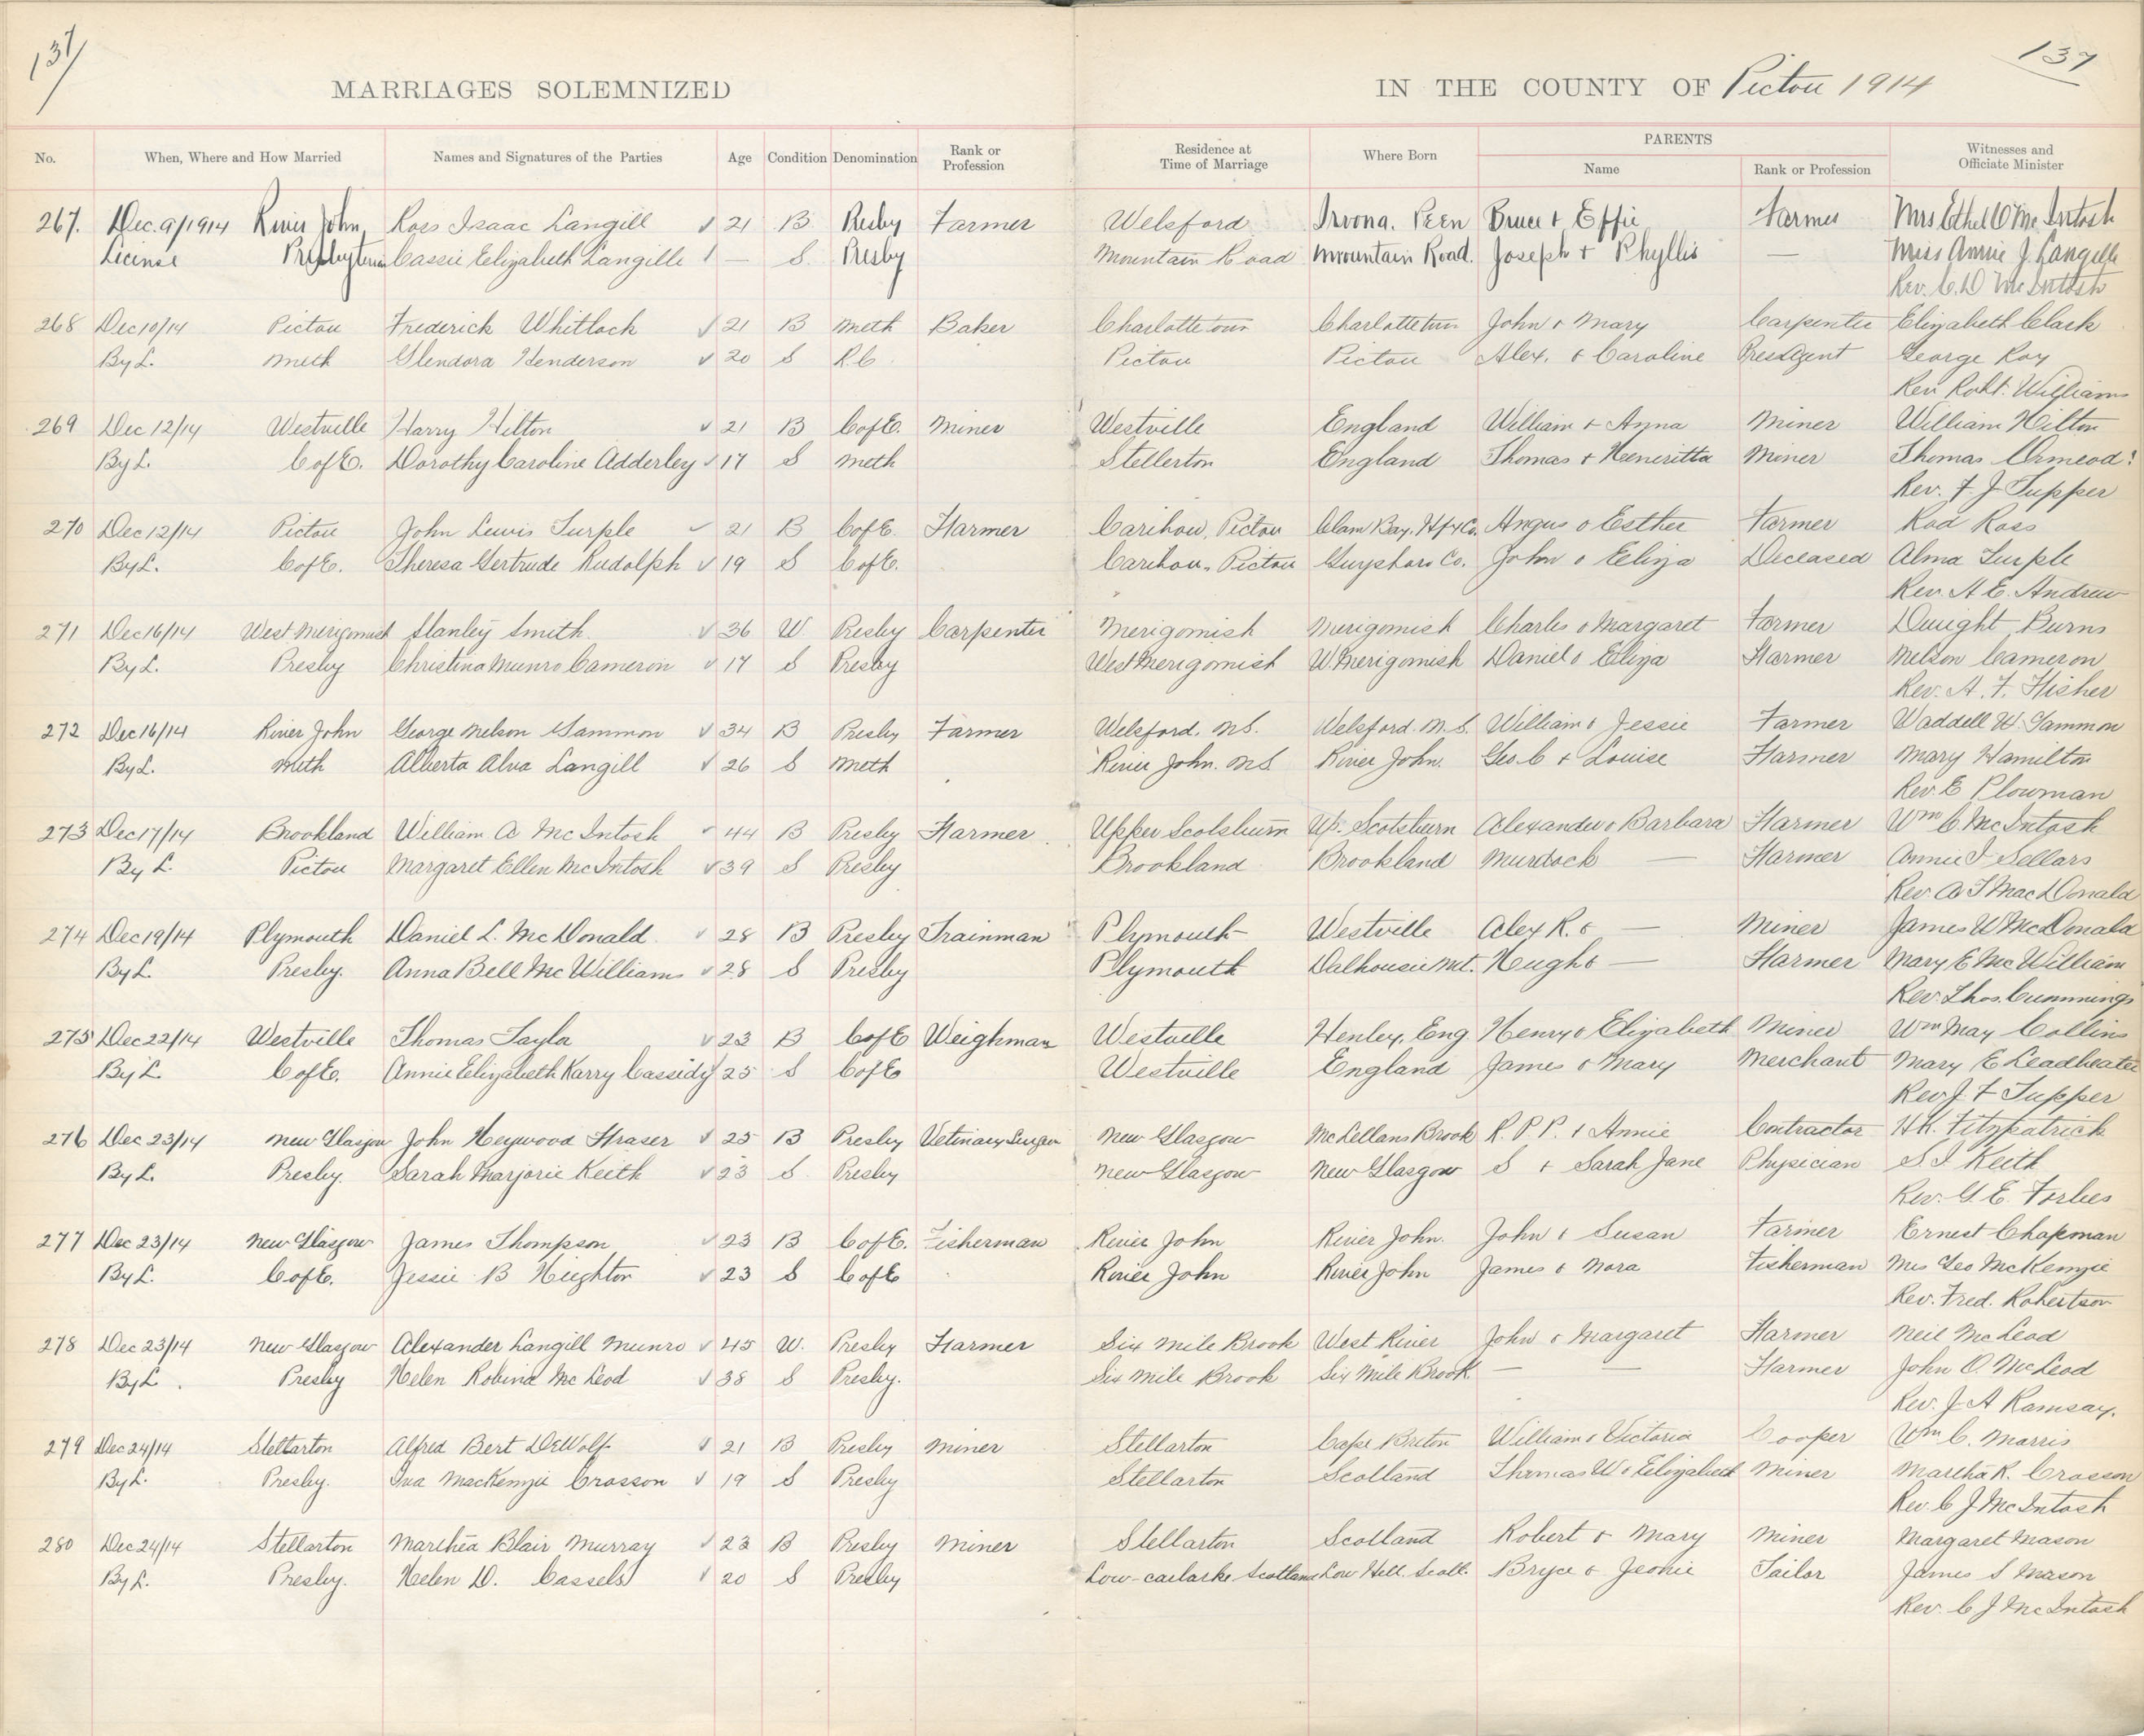 137
137
MARRIAGES SOLEMNIZED IN THE COUNTY OF Pictou 1914
No. When, Where and How Married Names and Signatures of the Parties Age Condition Denomination Rank or Profession Residence at Time of Marriage Where Born PARENTS Name Rank or Profession Witnesses and Officiate Minister
267. Dec. 9/1914 River John, Ross Isaac Langill 21 B. Presby Farmer Welsford Bruce & Effie Farmer Mrs Ethel O McIntosh
License Presbyterian Cassie Elizabeth Langille — S. Presby Mountain Road Mountain Road. Joseph & Phyllis — Miss Annie J. Langille
Rev. C. D McIntosh
268 Dec 10/14 Pictou Frederick Whitlock 21 B Meth Baker Charlottetown Charlottetown John & Mary Carpenter Elizabeth Clark
By L. Meth Glendora Henderson 20 S R.C. Pictou Pictou Alex. & Caroline George Roy
Rev Robt. Williams
269 Dec 12/14 Westville Harry Hilton 21 B C of E. Miner Westville England William & Anna Miner William Hilton
By L. C of E. Dorothy Caroline Adderley 17 S Meth Stellerton England Thomas & Heneritta Miner Thomas Ormeod
Rev. F. J Tupper
270 Dec 12/14 Pictou John Lewis Turple 21 B C of E. Farmer Carihou, Pictou Clam Bay. Hfx Co. Angus & Esther Farmer Rod Ross
By L. C of E. Theresa Gertrude Rudolph 19 S C of E. Carihou, Pictou Guysboro Co. John & Eliza Deceased Alma Turple
Rev. A E. Andrew
271 Dec 16/14 West Merigomish Stanley Smith. 36 W Presby Carpenter Merigomish Merigomish Charles & Margaret Farmer Dwight Burns
By L. Presby Christina Munro Cameron 17 S Presby West Merigomish W. Merigomish Daniel & Eliza Farmer Nelson Cameron
Rev. A. F. Fisher
272 Dec 16/14 River John George Nelson Gammon 34 B Presby Farmer Welsford. N.S. Welsford. N.S. William & Jessie Farmer Waddell W. Gammon
By L. Meth Alberta Alva Langill 26 S Meth River John. N.S River John. Geo. C & Louise Farmer Mary Hamilton
Rev. E Plowman
273 Dec 17/14 Brookland William A McIntosh 44 B Presby Farmer Upper Scotsburn Up. Scotsburn Alexander & Barbara Farmer Wm C. McIntosh
By L. Pictou Margaret Ellen McIntosh 39 S Presby Brookland Brookland Murdock — Farmer Annie J Sellars
Rev. A F MacDonald
274 Dec 19/14 Plymouth Daniel L. McDonald 28 B Presby Trainman Plymouth Westville Alex R. & — Miner James W McDonald
By L. Presby. Anna Bell McWilliams 28 S Presby Plymouth Dalhousie Mt. Hugh & — Farmer Mary E McWilliam
Rev. Thos. Cummings
275 Dec 22/14 Westville Thomas Taylor 23 B C of E Weighman Westville Henley, Eng Henry & Elizabeth Miner Wm May Collins
By L. C of E. Annie Elizabeth Karry Cassidy 25 S C of E Westville England James & Mary Merchant Mary E Leadbeater
Rev J F Tupper
276 Dec 23/14 New Glasgow John Heywood Fraser 25 B Presby Vetinary Surgeon New Glasgow McLellans Brook R. P. P. & Annie Contractor H.K. Fitzpatrick
By L. Presby. Sarah Marjorie Keith 23 S Presby New Glasgow New Glasgow S & Sarah Jane Physician S J Keith
Rev. G. E. Forbes
277 Dec 23/14 New Glasgow James Thompson 23 B C of E. Fisherman River John River John. John & Susan Farmer Ernest Chapman
By L. C of E. Jessie B Heighton 23 S C of E River John River John James & Nora Fisherman Mrs Geo McKenzie
Rev. Fred. Robertson
278 Dec 23/14 New Glasgow Alexander Langill Munro 45 W. Presby Farmer Six Mile Brook West River John & Margaret Farmer Neil McLeod
By L. Presby Helen Robina McLeod 38 S Presby. Six Mile Brook Six Mile Brook — — Farmer John O. McLeod
Rev. J. A Ramsay.
279 Dec 24/14 Stellarton Alfred Bert DeWolf 21 B Presby Miner Stellarton Cape Briton William & Victoria Cooper Wm C. Marris
By L. Presby. Ina MacKenzie Crosson 19 S Presby Stellarton Scotland Thomas W & Elizabeth Miner Martha R. Crosson
Rev. C J McIntosh
280 Dec 24/14 Stellarton Marthea Blair Murray 23 B Presby Miner Stellarton Scotland Robert & Mary Miner Margaret Mason
By L. Presby. Helen D. Cassels 20 S Presby Scotland Low Hill. Scotl. Bryce & Jeonie Tailor James S Mason
Rev. C J McIntosh